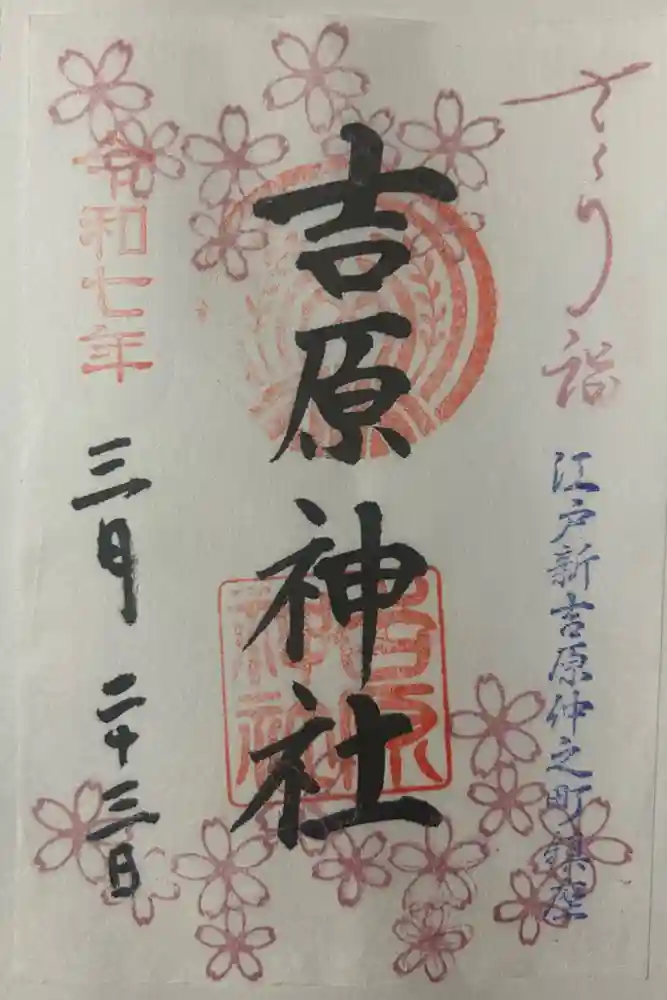 さくら詣
江戸新吉原仲之町鎮座
吉原神社
令和七年三月二十三日